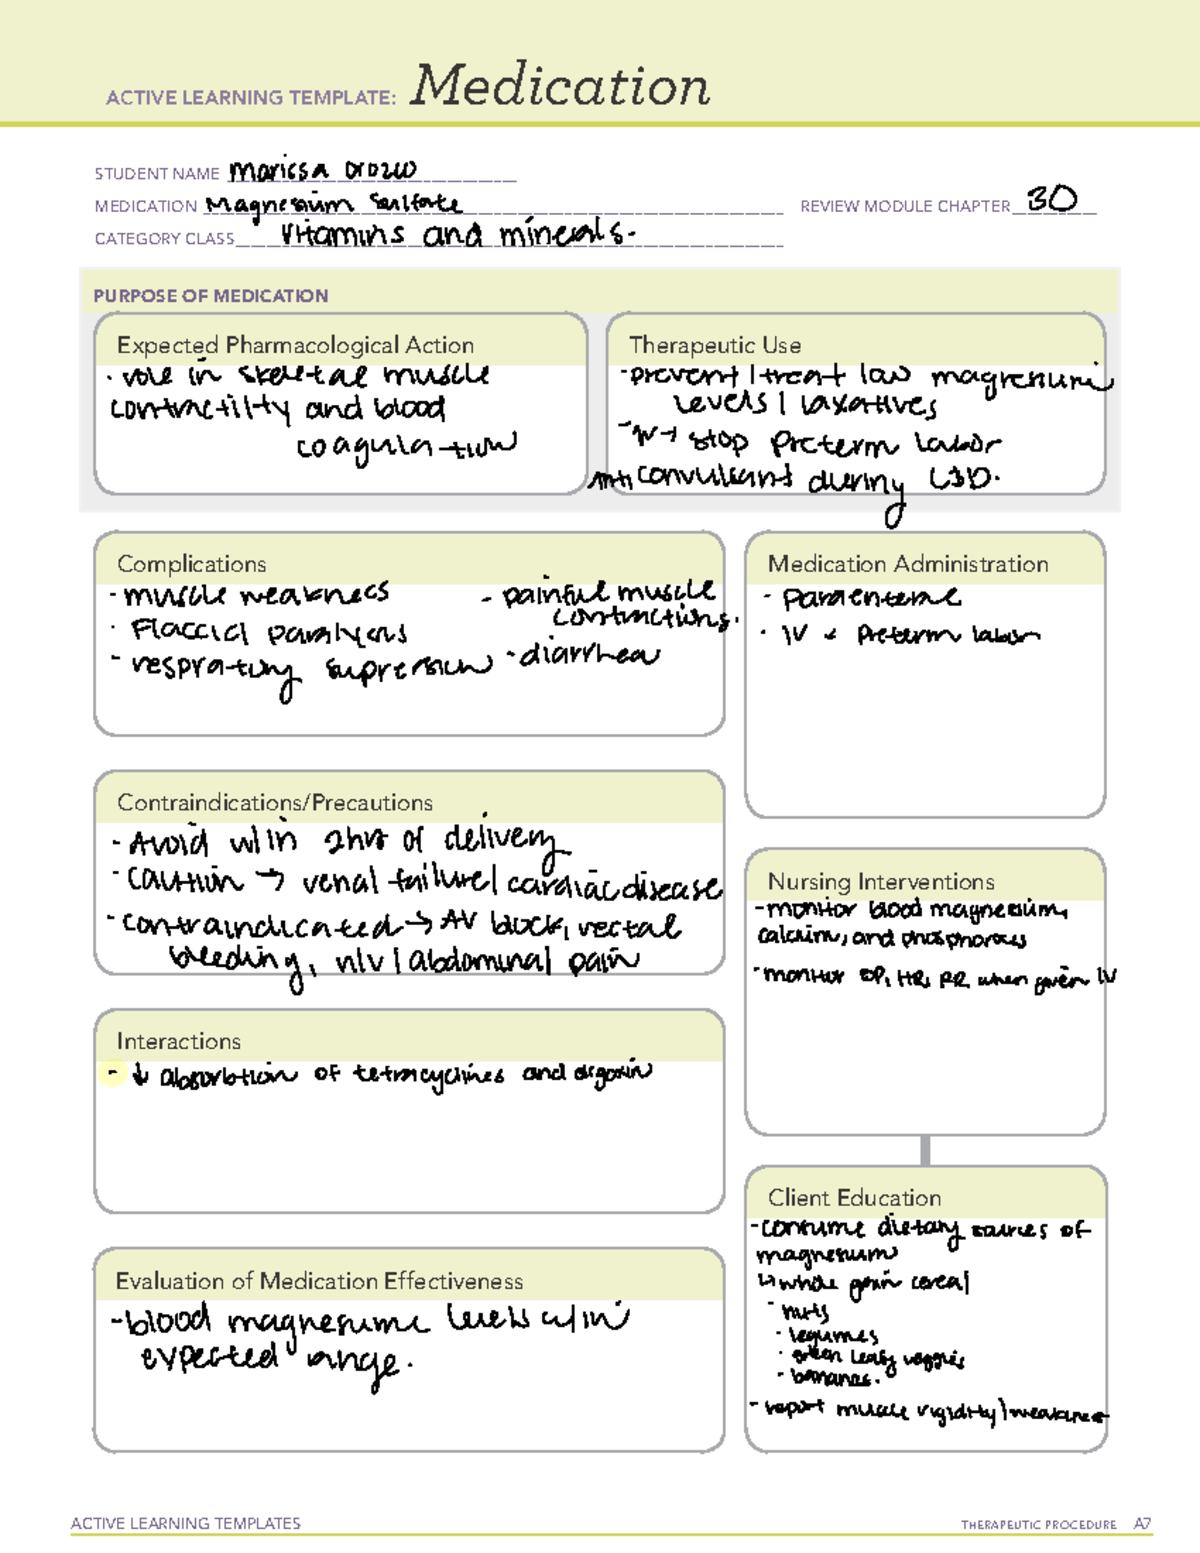 ACTIVE LEARNING TEMPLATE: Medication
STUDENT NAME Marissa Orozco
MEDICATION Magnesium Sulfate REVIEW MODULE CHAPTER 30
CATEGORY CLASS Vitamins and minerals.
PURPOSE OF MEDICATION
Expected Pharmacological Action
· role in skeletal muscle
contractility and blood
coagulation
Therapeutic Use
- prevent | treat low magnesium
levels | laxatives
- IV → stop preterm labor
Anti convulsant during L&D.
Complications
- muscle weakness
· Flaccid paralysis
- respiratory supression
- painful muscle
contractions.
- diarrhea
Medication Administration
- Parenteral
· IV preterm labor
Contraindications/Precautions
- Avoid w/in 2hrs of delivery
- caution → renal failure | cardiac disease
- contraindicated → AV block, rectal
bleeding, n/v | abdominal pain
Nursing Interventions
- monitor blood magnesium,
calcium, and phosphorous
- monitor BP, HR, RR when given IV
Interactions
- ↓ absorbtion of tetracyclines and digoxin
Evaluation of Medication Effectiveness
- blood magnesium levels w/in
expected range.
Client Education
- consume dietary sources of
magnesium
↳ whole grain cereal
- nuts
· legumes
· green leafy veggies
- bananas.
- report muscle rigidity | weakness
ACTIVE LEARNING TEMPLATES THERAPEUTIC PROCEDURE A7